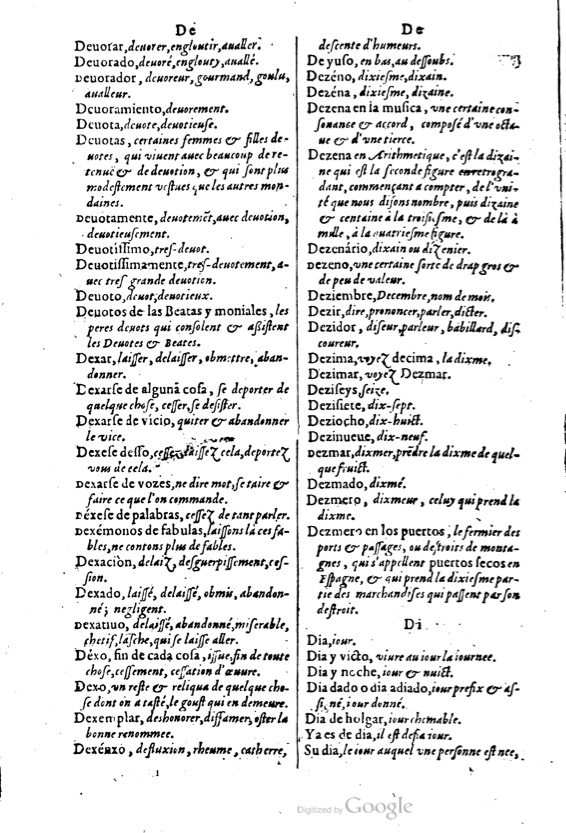 De
Deuorar, deuorer, engloutir, aualler.
Deuorado, deuoré, englouty, auallé.
Deuorador, deuoreur, gourmand, goulu,
aualleur.
Deuoramiento, deuorement.
Deuota, deuote, deuotieuse.
Deuotas, certaines femmes & filles de-
uotes, qui viuent auec beaucoup de re-
tenuë & de deuotion, & qui sont plus
modestement vestues que les autres mon-
daines.
Deuotamente, deuotemēt, auec deuotion,
deuotieusement.
Deuotissimo, tres-deuot.
Deuotissimamente, tres-deuotement, a-
uec tres grande deuotion.
Deuoto, deuot, deuotieux.
Deuotos de las Beatas y moniales, les
peres deuots qui consolent & assistent
les Deuotes & Beates.
Dexar, laisser, delaisser, obmettre, aban-
donner.
Dexarse de alguna cosa, se deporter de
quelque chose, cesser, se desister.
Dexarse de vicio, quiter & abandonner
le vice.
Dexese desso, cessez, laissez cela, deportez
vous de cela.
Dexarse de vozes, ne dire mot, se taire &
faire ce que l'on commande.
Déxese de palabras, cessez de tant parler.
Dexémonos de fabulas, laissons là ces fa-
bles, ne contons plus de fables.
Dexacion, delaiz, desguerpissement, ces-
sion.
Dexado, laissé, delaissé, obmis, abandon-
né; negligent.
Dexatiuo, delaissé, abandonné, miserable,
chetif, lasche, qui se laisse aller.
Déxo, fin de cada cosa, issue, fin de toute
chose, cessement, cessation d'œuure.
Dexo, vn reste & reliqua de quelque cho-
se dont on a tasté, le goust qui en demeure.
Dexemplar, deshonorer, diffamer, oster la
bonne renommee.
Dexénxo, defluxion, rheume, catherre,
De
descente d'humeurs.
De yuso, en bas, au dessoubs.
Dezéno, dixiesme, dixain.
Dezéna, dixiesme, dizaine.
Dezena en la musica, vne certaine con-
sonance & accord, composé d'vne octa-
ue & d'vne tierce.
Dezena en Arithmetique, c'est la dizai-
ne qui est la seconde figure en retrogra-
dant, commençant a compter, de l'vni-
té que nous disons nombre, puis dizaine
& centaine à la troisiesme, & de là à
mille, à la quatriesme figure.
Dezenário, dixain ou dizenier.
Dezeno, vne certaine sorte de drap gros &
de peu de valeur.
Deziembre, Decembre, nom de mois.
Dezir, dire, prononcer, parler, dicter.
Dezidor, diseur, parleur, babillard, dis-
coureur.
Dezima, voyez decima, la dixme.
Dezimar, voyez Dezmar.
Deziseys, seize.
Dezisiete, dix-sept.
Deziocho, dix-huict.
Dezinueue, dix-neuf.
Dezmar, dixmer, prēdre la dixme de quel-
que fruict.
Dezmado, dixmé.
Dezmero, dixmeur, celuy qui prend la
dixme.
Dezmero en los puertos, le fermier des
ports & passages, ou destroits de monta-
gnes, qui s'appellent puertos secos en
Espagne, & qui prend la dixiesme par-
tie des marchandises qui passent par son
destroit.
Di
Dia, iour.
Dia y victo, viure au iour la iournee.
Dia y noche, iour & nuict.
Dia dado o dia adiado, iour prefix & as-
signé, iour donné.
Dia de holgar, iour chommable.
Ya es de dia, il est desia iour.
Su dia, le iour auquel vne personne est nee,
Digitized by Google